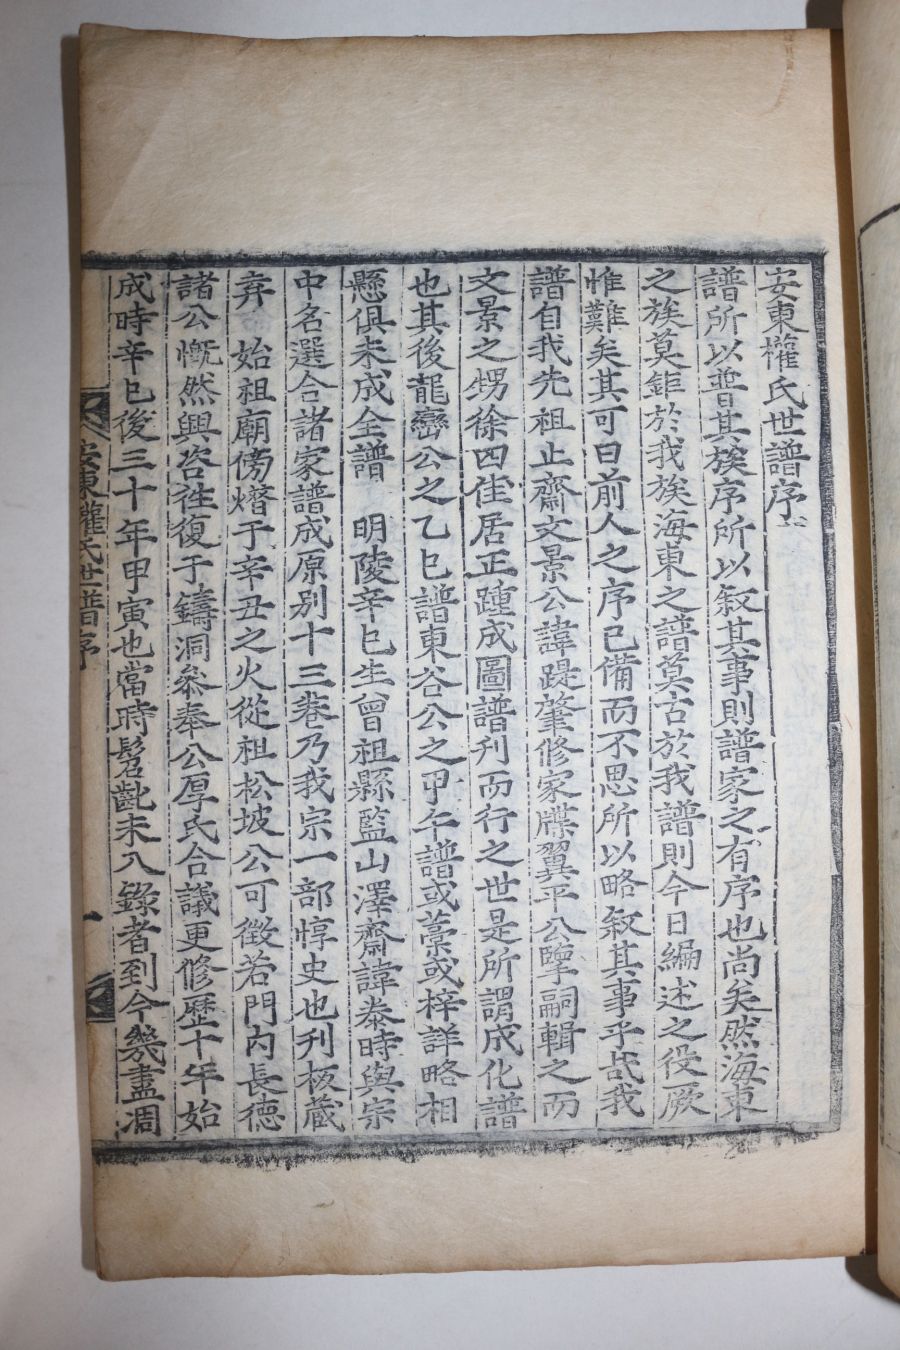 安東權氏世譜序
譜所以普其族序所以叙其事則譜家之有序也尚矣然海東
之族莫鉅於我族海東之譜莫古於我譜則今日編述之役厥
惟難矣其可曰前人之序已備而不思所以略叙其事乎哉我
譜自我先祖止齋文景公諱踶肇修家牒翼平公擥嗣輯之而
文景之甥徐四佳居正踵成圖譜刊而行之世是所謂成化譜
也其後龍巒公之乙巳譜東谷公之甲午譜或藁或梓詳略相
懸俱未成全譜 明陵辛巳生曾祖縣監山澤齋諱泰時與宗
中名選合諸家譜成原別十三卷乃我宗一部惇史也刊板藏
弆 始祖廟傍熸于辛丑之火從祖松坡公可徵若門內長德
諸公慨然興咨往復于鑄洞叅奉公厚氏合議更修歷十年始
成時辛巳後三十年甲寅也當時髫齔未入錄者到今幾盡凋
安東權氏世譜序 一